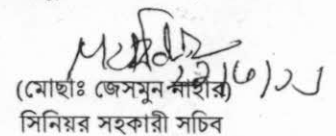 (মোছাঃ জেসমুন নাহার)
সিনিয়র সহকারী সচিব